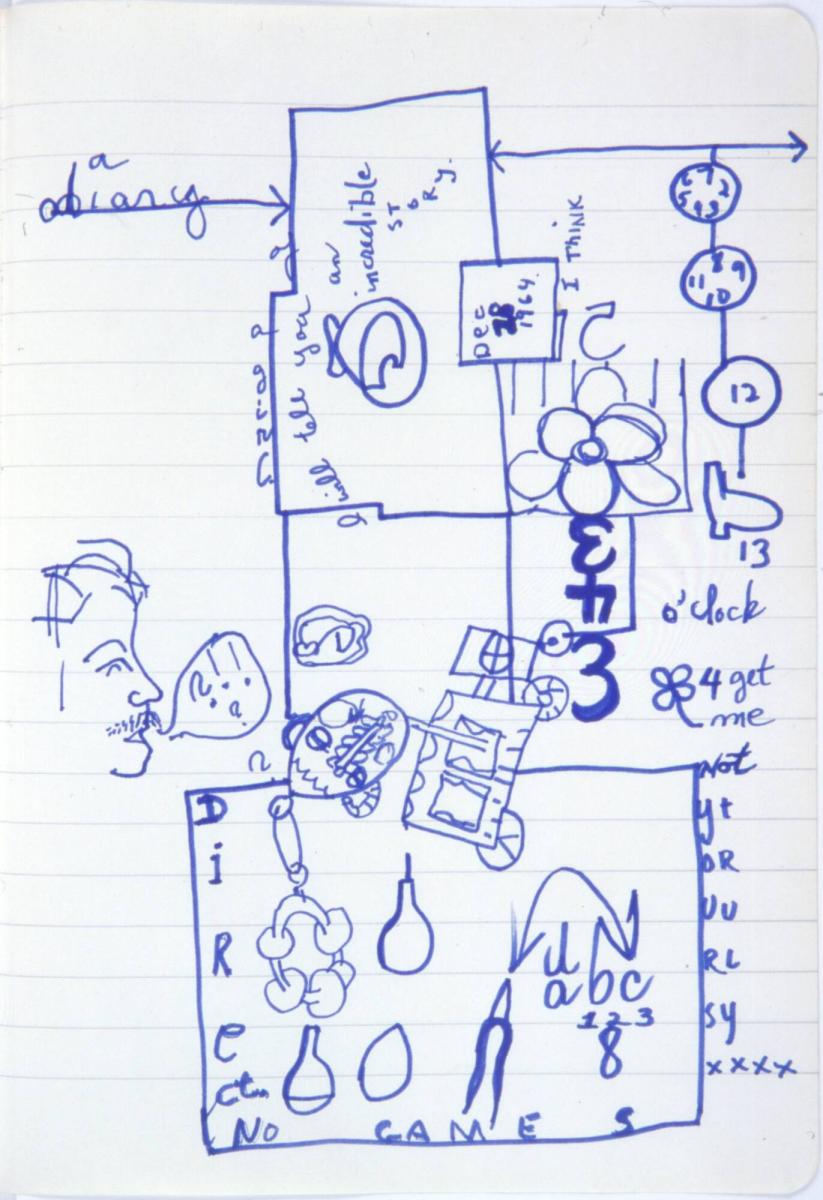 a
diary
I will tell you
an
incredible
STORY.
Dec
28
1964.
I THINK
6 7 2
5 4 3
8 9
11 10
12
13
o'clock
3
4
3
4 get
me
Not
yt
OR
UU
RL
sy
xxxx
D
i
R
e
ct.
d
abc
123
8
NO GAMES